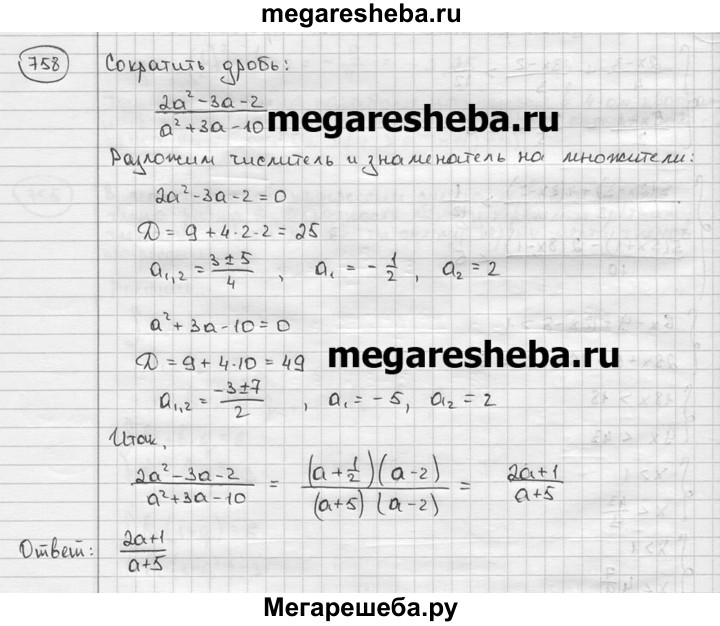 megaresheba.ru
758 Сократить дробь:
(2a² - 3a - 2)/(a² + 3a - 10) megaresheba.ru
Разложим числитель и знаменатель на множители:
2a² - 3a - 2 = 0
D = 9 + 4·2·2 = 25
a₁,₂ = (3 ± 5)/4 , a₁ = - 1/2 , a₂ = 2
a² + 3a - 10 = 0
D = 9 + 4·10 = 49 megaresheba.ru
a₁,₂ = (-3 ± 7)/2 , a₁ = - 5, a₂ = 2
Итак,
(2a² - 3a - 2)/(a² + 3a - 10) = ((a + 1/2)(a - 2))/((a + 5)(a - 2)) = (2a + 1)/(a + 5)
Ответ: (2a + 1)/(a + 5)
Мегарешеба.ру